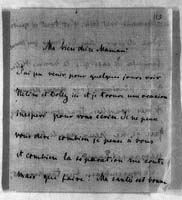 Ma bien chère Maman!
J'ai pu venir pour quelques jours voir
Hélène et Dolly ici et je trouve une occasion
pour vous écrire. Je ne peux
vous dire combien je pense à vous
et combien la séparation me coûte
Mais que faire! Ma santé est bonne